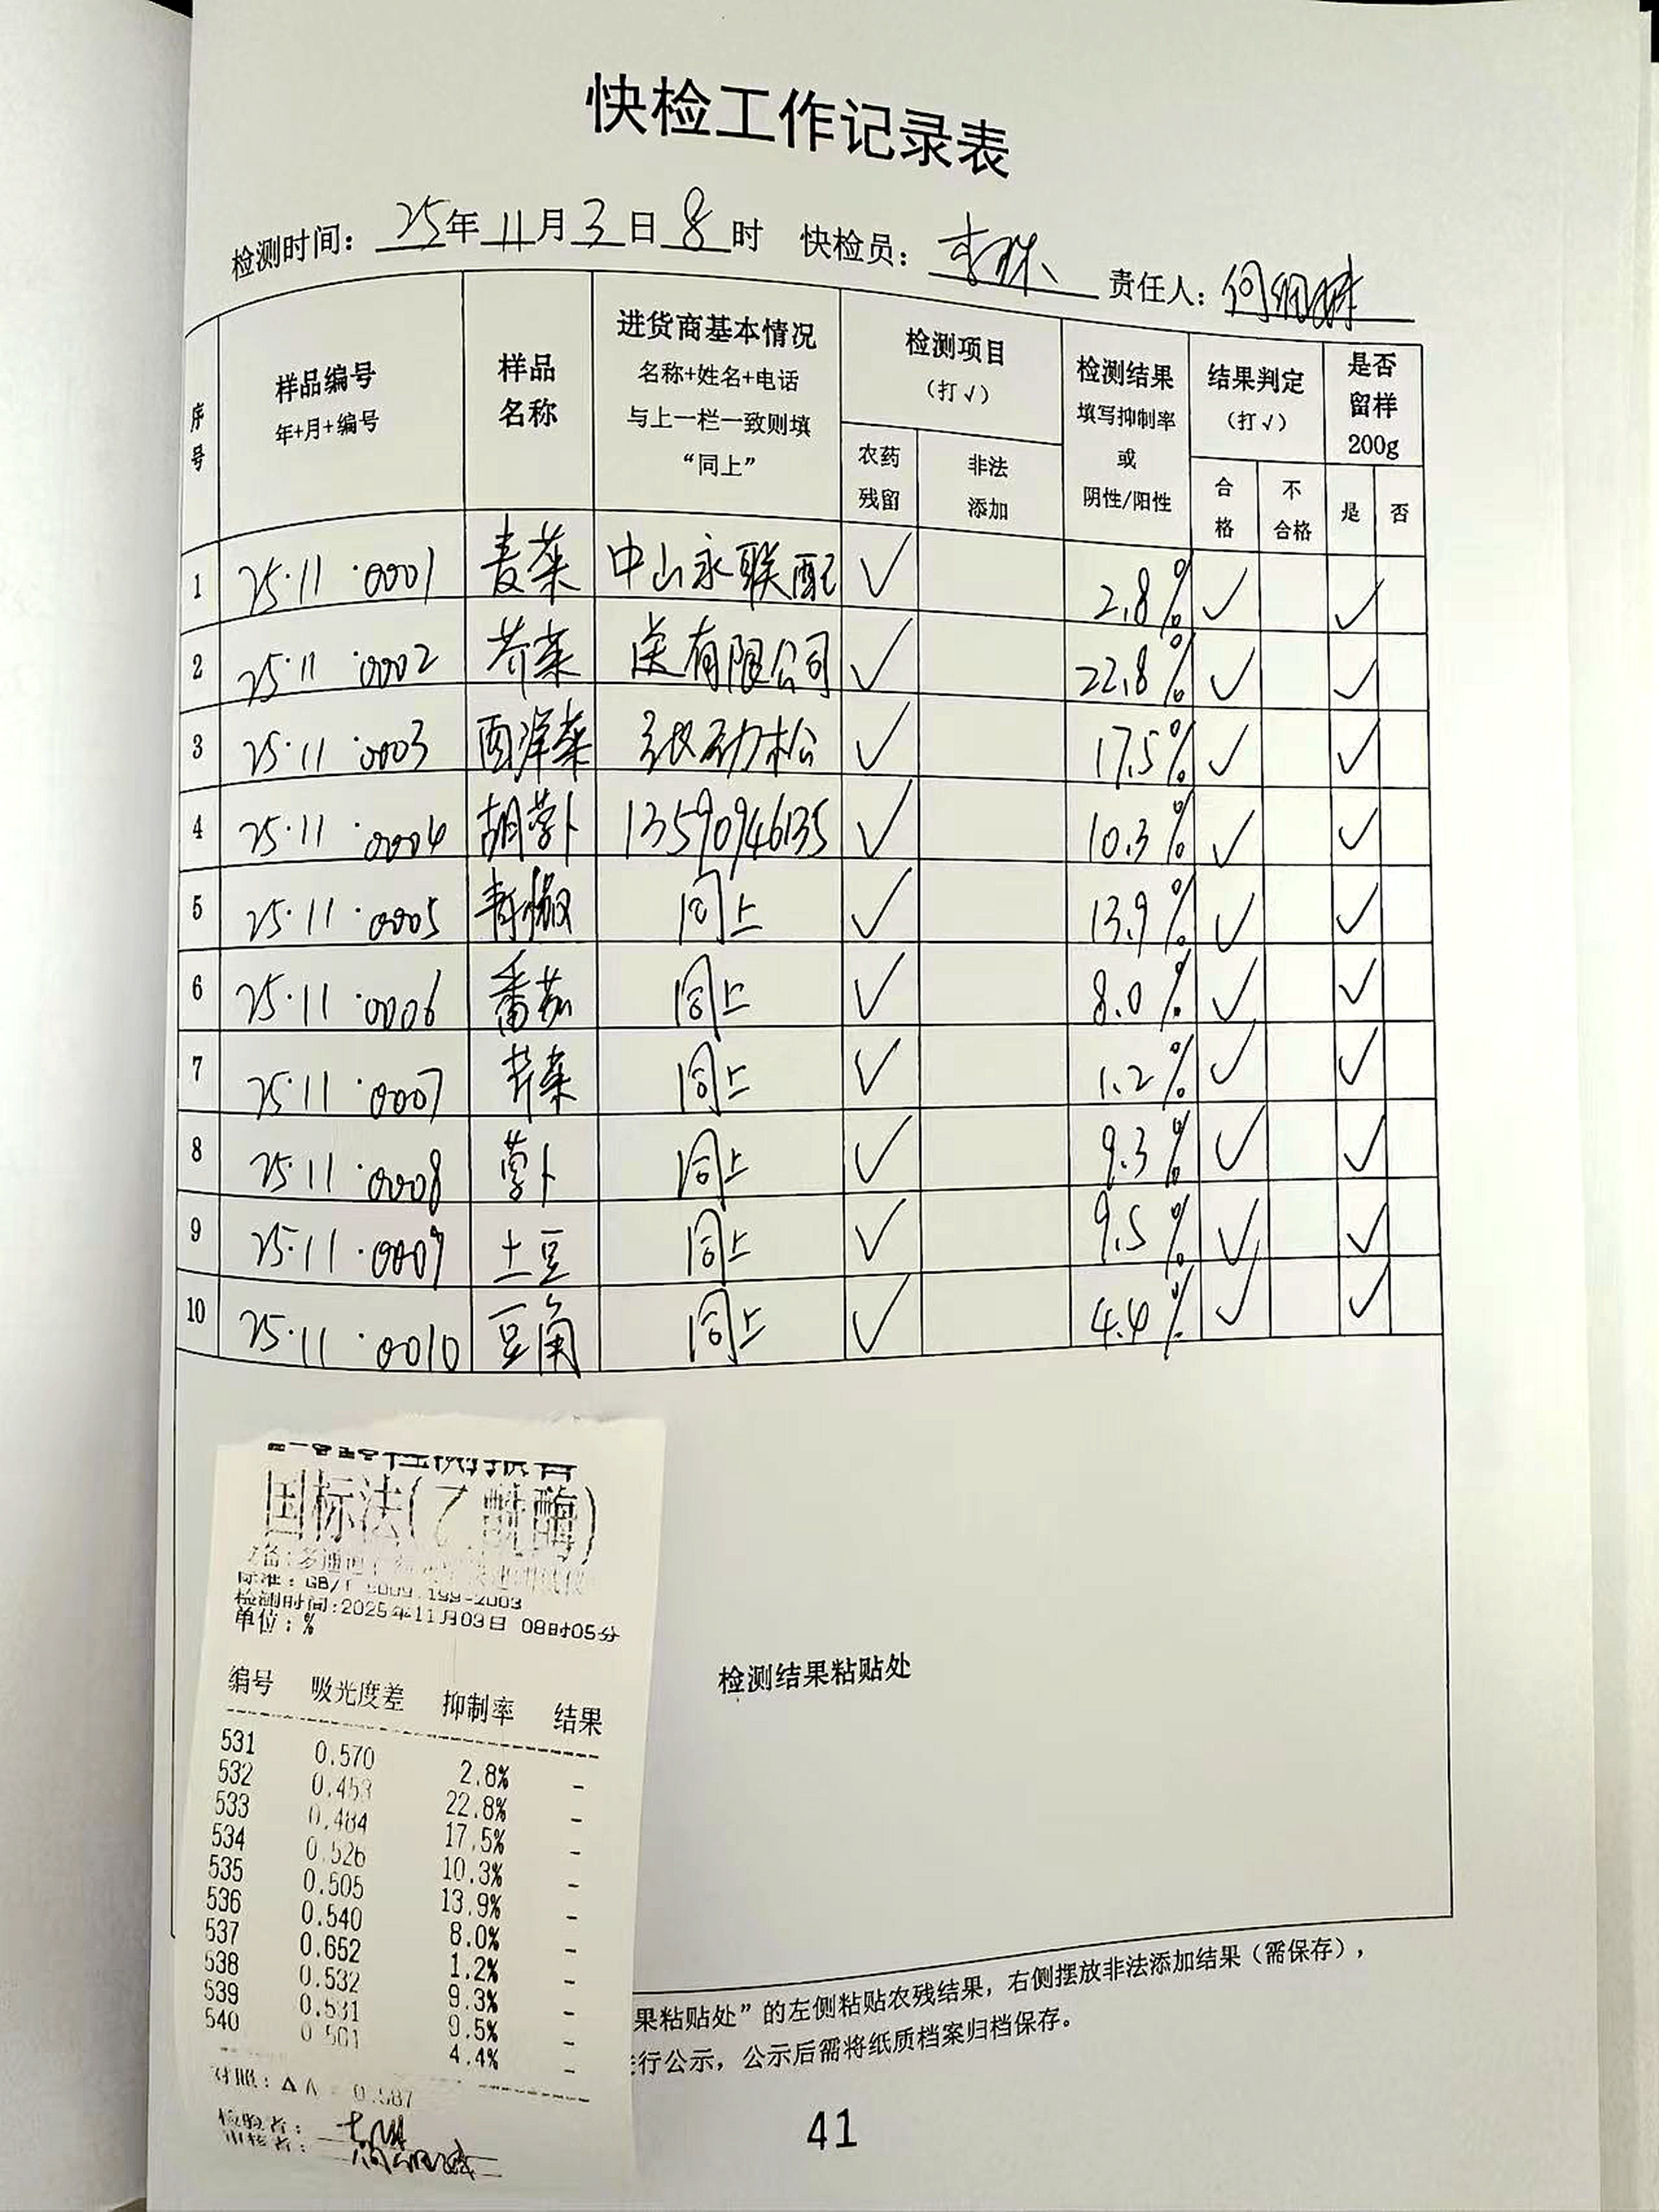 快检工作记录表
检测时间：25年11月3日8时 快检员：李 责任人：何
序号 样品编号 年+月+编号 样品名称 进货商基本情况 名称+姓名+电话 与上一栏一致则填“同上” 检测项目（打√） 农药残留 非法添加 检测结果 填写抑制率或阴性/阳性 结果判定（打√） 合格 不合格 是否留样200g 是 否
1 25·11·0001 麦菜 中山永联配 √ 2.8% √ √
2 25·11·0002 芥菜 送有限公司 √ 22.8% √ √
3 25·11·0003 西洋菜 张劲松 √ 17.5% √ √
4 25·11·0004 胡萝卜 13590946135 √ 10.3% √ √
5 25·11·0005 青椒 同上 √ 13.9% √ √
6 25·11·0006 番茄 同上 √ 8.0% √ √
7 25·11·0007 芹菜 同上 √ 1.2% √ √
8 25·11·0008 萝卜 同上 √ 9.3% √ √
9 25·11·0009 土豆 同上 √ 9.5% √ √
10 25·11·0010 豆角 同上 √ 4.4% √ √
检测报告
国标法(乙酰酶)
标准：GB/T 5009.199-2003
检测时间:2025年11月03日 08时05分
单位：%
检测结果粘贴处
编号 吸光度差 抑制率 结果
531 0.570 2.8% -
532 0.453 22.8% -
533 0.484 17.5% -
534 0.526 10.3% -
535 0.505 13.9% -
536 0.540 8.0% -
537 0.652 1.2% -
538 0.532 9.3% -
539 0.531 9.5% -
540 4.4% -
对照：ΔA 0.587
检验者：
审核者：
果粘贴处”的左侧粘贴农残结果，右侧摆放非法添加结果（需保存），
行公示，公示后需将纸质档案归档保存。
41